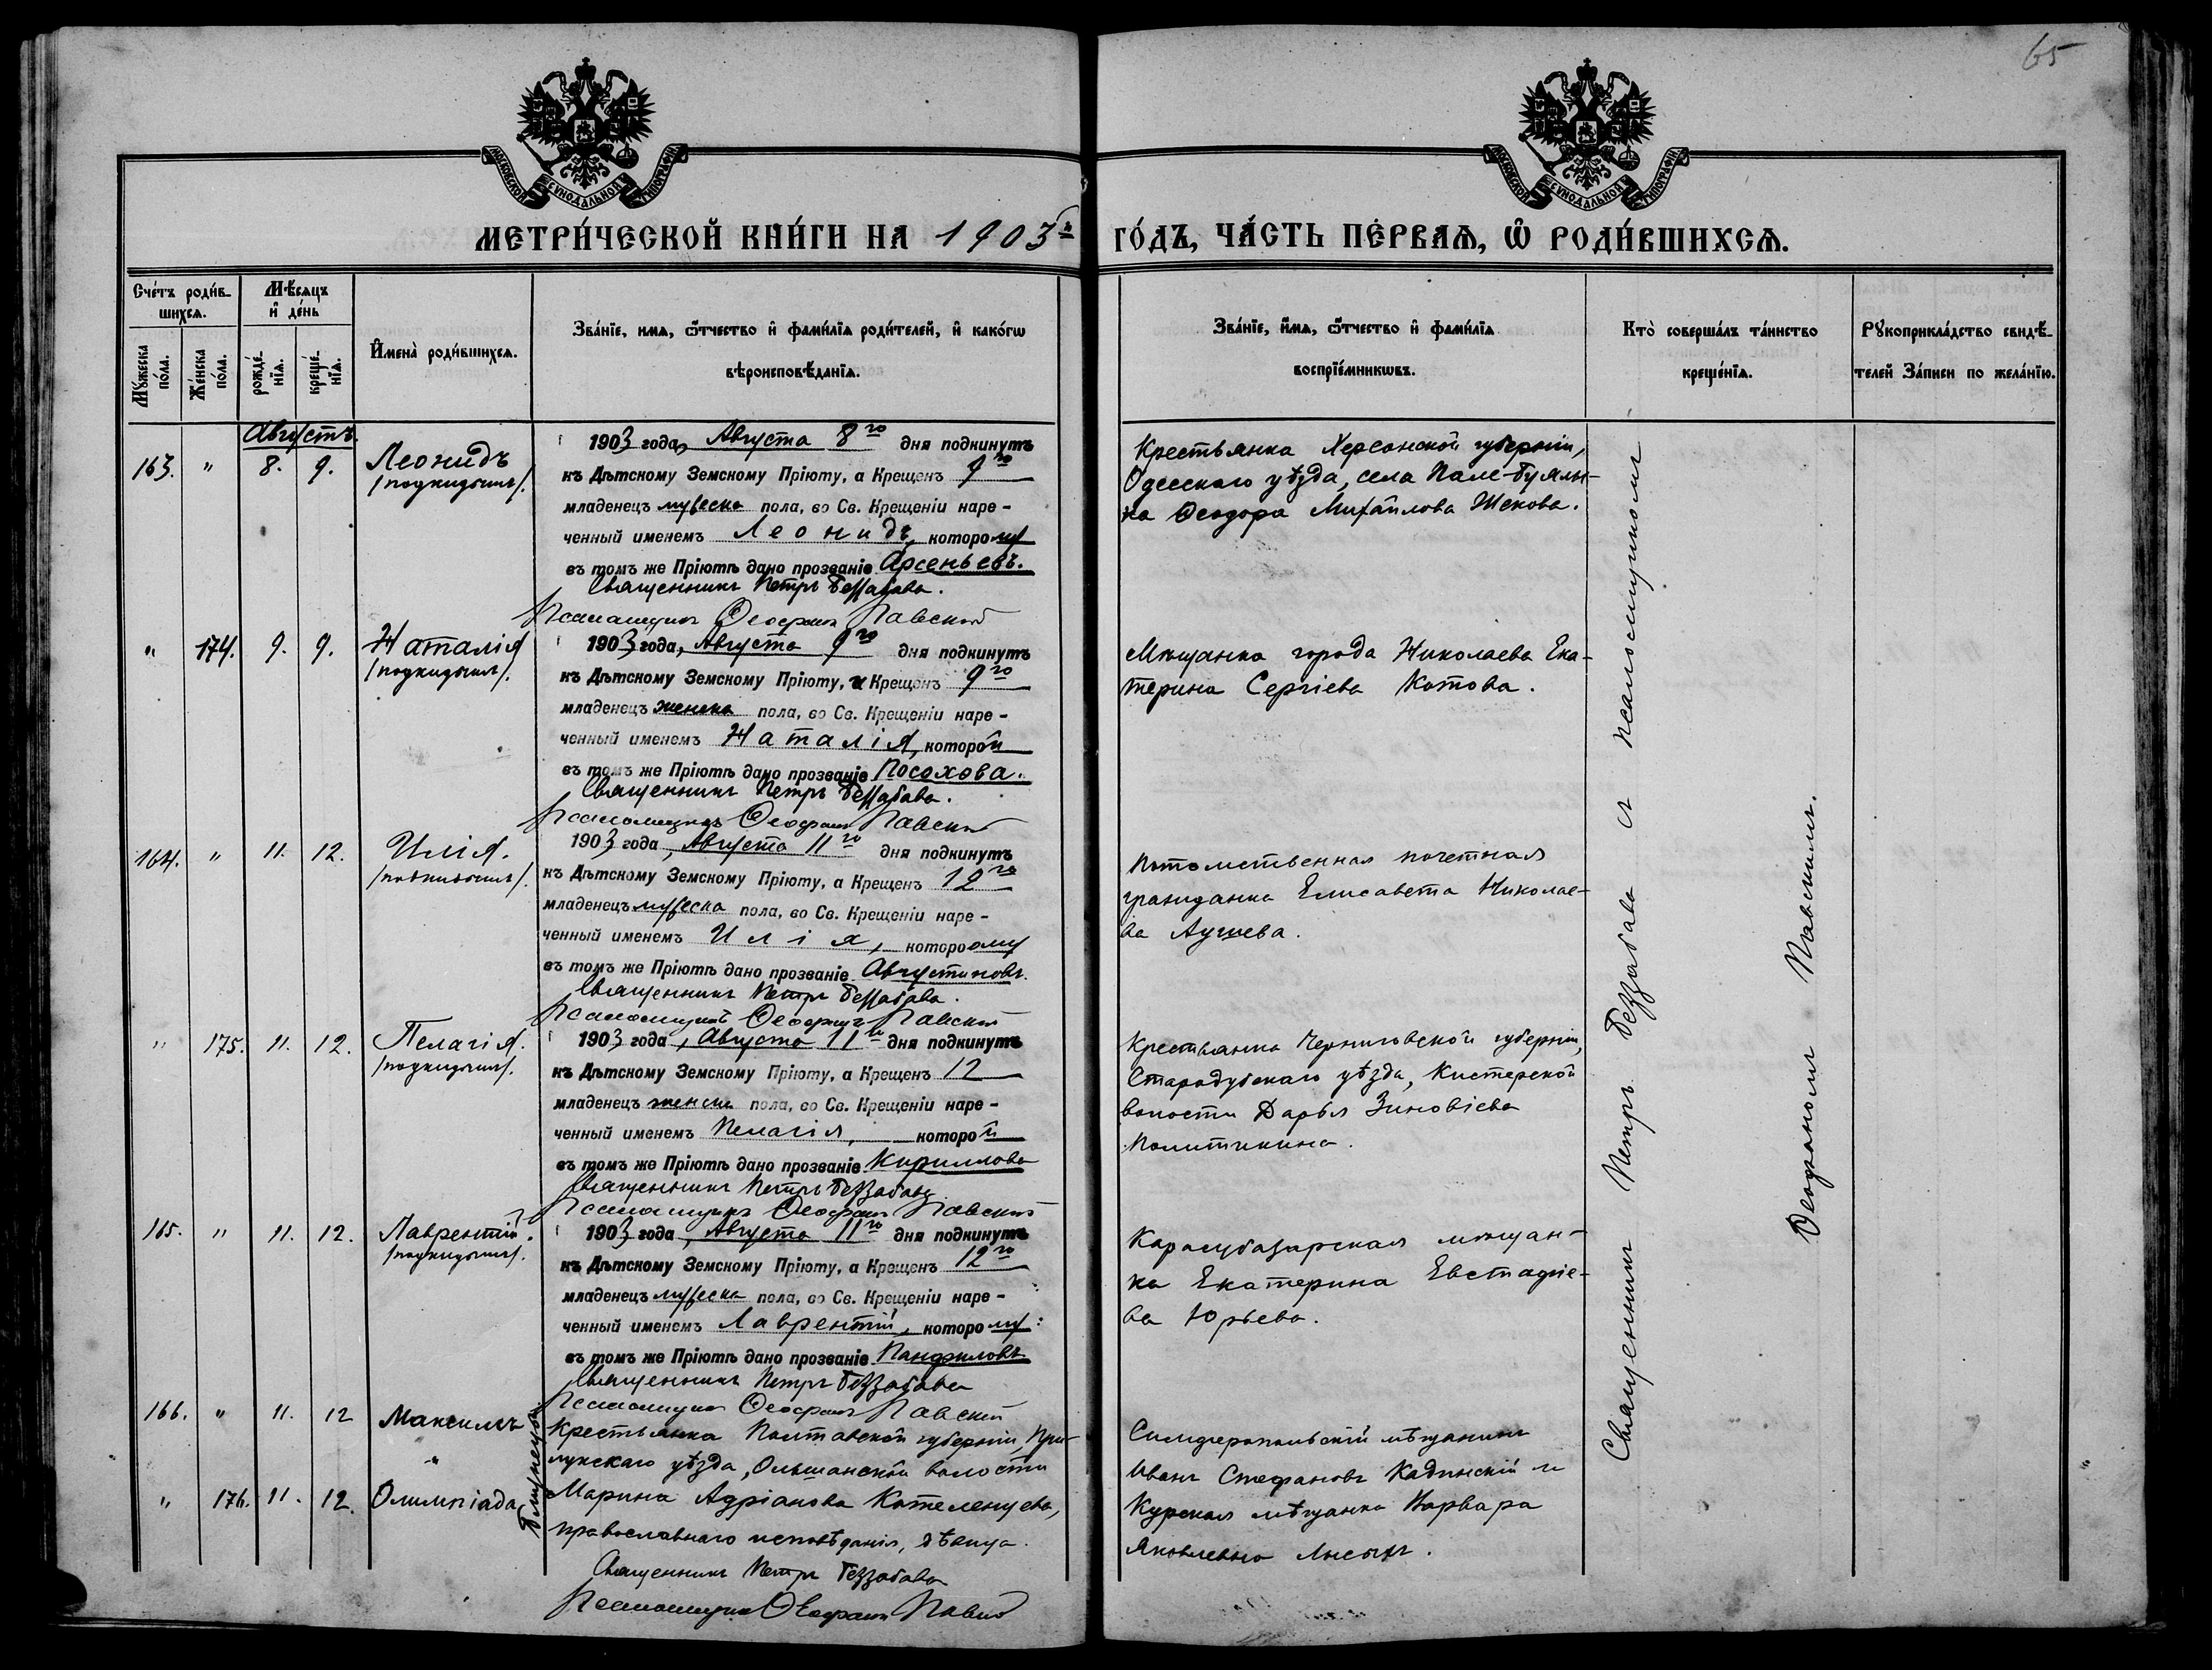 65
МОСКОВСКОЙ СѴНОДАЛЬНОЙ ТИПОГРАФІИ
МОСКОВСКОЙ СѴНОДАЛЬНОЙ ТИПОГРАФІИ
МЕТРИ́ЧЕСКОЙ КНИ́ГИ НА 1903й ГО́ДЪ, ЧА́СТЬ ПЕ́РВАѦ, Ѽ РОДИ́ВШИХСѦ.
Сче́тъ роди́в-
шихсѧ.
Мѣ́сѧцъ
и҆ де́нь
Мꙋ́жеска по́ла.
Же́нска по́ла.
рожде́-нїѧ.
креще́-нїѧ.
И҆мена̀ роди́вшихсѧ.
Зва́нїе, имѧ, ѻ҆́тчество и҆ фами́лїѧ роди́телей, и҆ како́гѡ
вѣроисповѣ́данїѧ.
Зва́нїе, и҆́мѧ, ѻ҆́тчество и҆ фами́лїѧ
воспрїе́мникѡвъ.
Кто̀ соверша́лъ та́инство
креще́нїѧ.
Рꙋкоприкла́дство свидѣ́-
телей За́писи по жела́нїю.
Августъ.
163. " 8. 9. Леонидъ
/подкидышъ/.
1903 года, Августа 8го дня подкинутъ
къ Дѣтскому Земскому Пріюту, а Крещенъ 9го
младенецъ мужеска пола, во Св. Крещеніи наре-
ченный именемъ Леонидъ, которому
въ томъ же Пріютѣ дано прозваніе Арсеньевъ.
Священникъ Петръ Беззабава.
Псаломщикъ Ѳеофанъ Павскій
Крестьянка Херсонской губерніи,
Одесскаго уѣзда, села
Ѳеодора Михайлова
" 174. 9. 9. Наталія
/подкидышъ/.
1903 года, Августа 9го дня подкинутъ
къ Дѣтскому Земскому Пріюту, а Крещенъ 9го
младенецъ женска пола, во Св. Крещеніи наре-
ченный именемъ Наталія, которой
въ томъ же Пріютѣ дано прозваніе Посохова.
Священникъ Петръ Беззабава.
Псаломщикъ Ѳеофанъ Павскій
Мѣщанка города Николаева Ека-
терина Сергіева Котова.
164. " 11. 12. Илія.
/подкидышъ/.
1903 года, Августа 11го дня подкинутъ
къ Дѣтскому Земскому Пріюту, а Крещенъ 12го
младенецъ мужеска пола, во Св. Крещеніи наре-
ченный именемъ Илія, котороому
въ томъ же Пріютѣ дано прозваніе Августиновъ.
Священникъ Петръ Беззабава.
Псаломщикъ Ѳеофанъ Павскій
Потомственная почетная
гражданка Елисавета Николае-
ва
" 175. 11. 12. Пелагія.
/подкидышъ/.
1903 года, Августа 11го дня подкинутъ
къ Дѣтскому Земскому Пріюту, а Крещенъ 12
младенецъ женска пола, во Св. Крещеніи наре-
ченный именемъ Пелагія, которой
въ томъ же Пріютѣ дано прозваніе Кириллова
Священникъ Петръ Беззабава
Псаломщикъ Ѳеофанъ Павскій
Крестьянка Черниговской губерніи,
Стародубскаго уѣзда, Кистерской
волости Дарья Зиновіева
165. " 11. 12. Лаврентій.
/подкидышъ/.
1903 года, Августа 11го дня подкинутъ
къ Дѣтскому Земскому Пріюту, а Крещенъ 12го
младенецъ мужеска пола, во Св. Крещеніи наре-
ченный именемъ Лаврентій, которому:
въ томъ же Пріютѣ дано прозваніе Панфиловъ
Священникъ Петръ Беззабава
Псаломщикъ Ѳеофанъ Павскій
Карасубазарская мѣщан-
ка Екатерина Евстафіе-
ва Юрьева.
166. " 11. 12 Максимъ
" 176. 11. 12. Олимпіада
близнецы
Крестьянка Полтавской губерніи, При-
лукскаго уѣзда, Ольшанской волости
Марина Адріанова
православнаго исповѣданія, дѣвица.
Священникъ Петръ Беззабава
Псаломщикъ Ѳеофанъ Павскій
Симферопольскій мѣщанинъ
Иванъ Стефановъ Кадинскій и
Курская мѣщанка Варвара
Яковлевна
Священникъ Петръ Беззабава съ псаломщикомъ
Ѳеофаномъ Павскимъ.